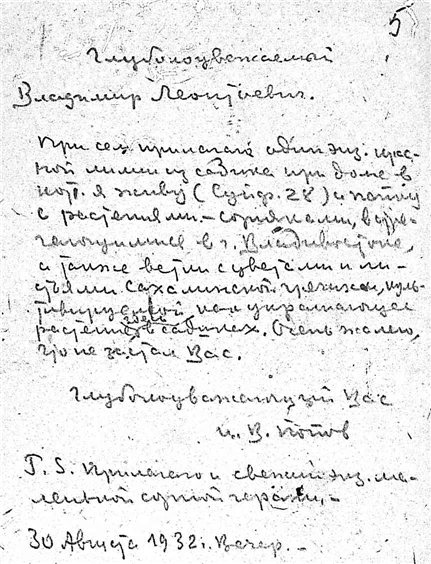 5
Глубокоуважаемый
Владимир Леонтьевич.
При сем прилагаю один экз. крас-
ной лилии из садика при доме в
кот. я живу (Суйф. 28) и папку
с растениями - сорняками,
в г. Владивостоке,
а также ветки с цветами и ли-
стьями Сахалинской гречихи, куль-
тивируемой, как украшающее
растение здесь в садиках. Очень жалею,
что не застал Вас.
Глубокоуважающий Вас
В. Попов
P.S. Прилагаю и свежий экз. ма-
ленькой сорной герани. -
30 Августа 1932 г. Вечер. -